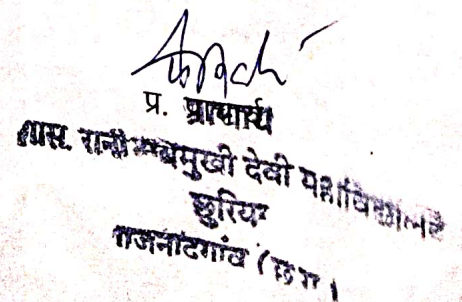 प्र. प्राचार्य
शास. रानी सूर्यमुखी देवी महाविद्यालय
छुरिया
राजनांदगांव (छ.ग.)